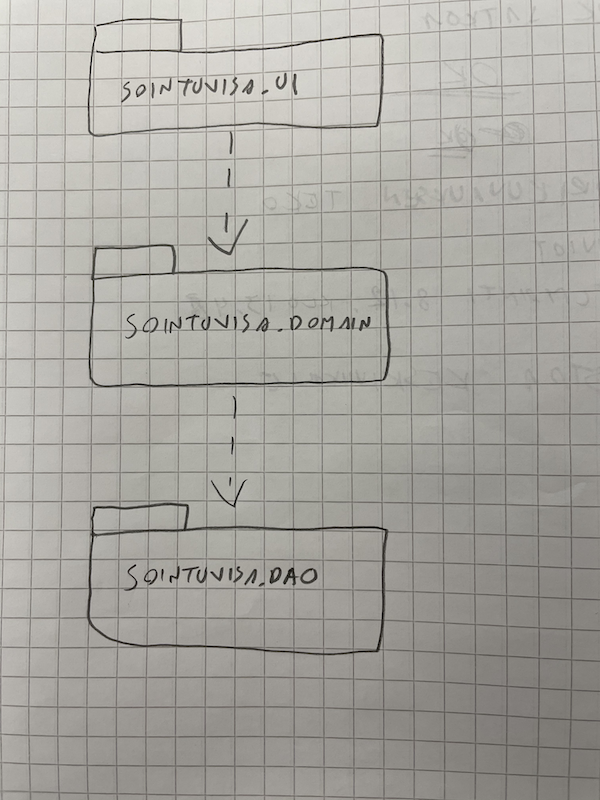 SOINTUVISA.UI
SOINTUVISA.DOMAIN
SOINTUVISA.DAO